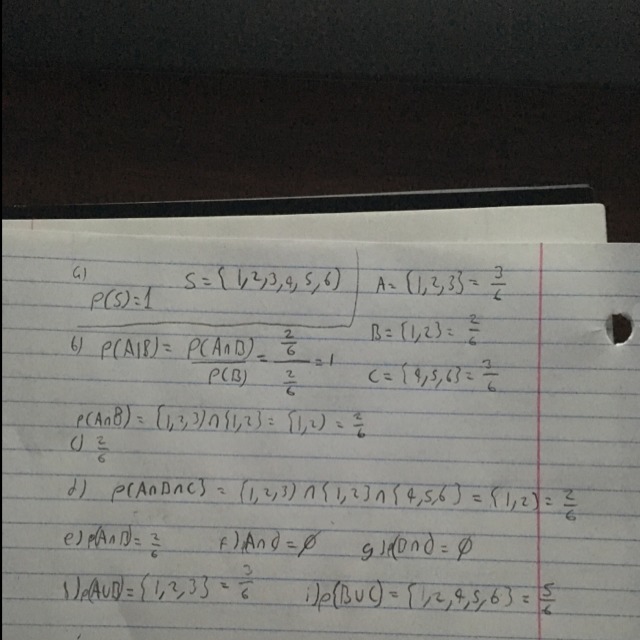 a) S={1,2,3,4,5,6} A={1,2,3}=3/6
P(S)=1
B={1,2}=2/6
b) P(A|B)=P(A∩B)/P(B)=(2/6)/(2/6)=1
C={4,5,6}=3/6
P(A∩B)={1,2,3}∩{1,2}={1,2}=2/6
c) 2/6
d) P(A∩B∩C)={1,2,3}∩{1,2}∩{4,5,6}={1,2}=2/6
e) P(A∩B)=2/6 f) A∩C=∅ g) P(B∩C)=∅
h) P(A∪B)={1,2,3}=3/6 i) P(B∪C)={1,2,4,5,6}=5/6